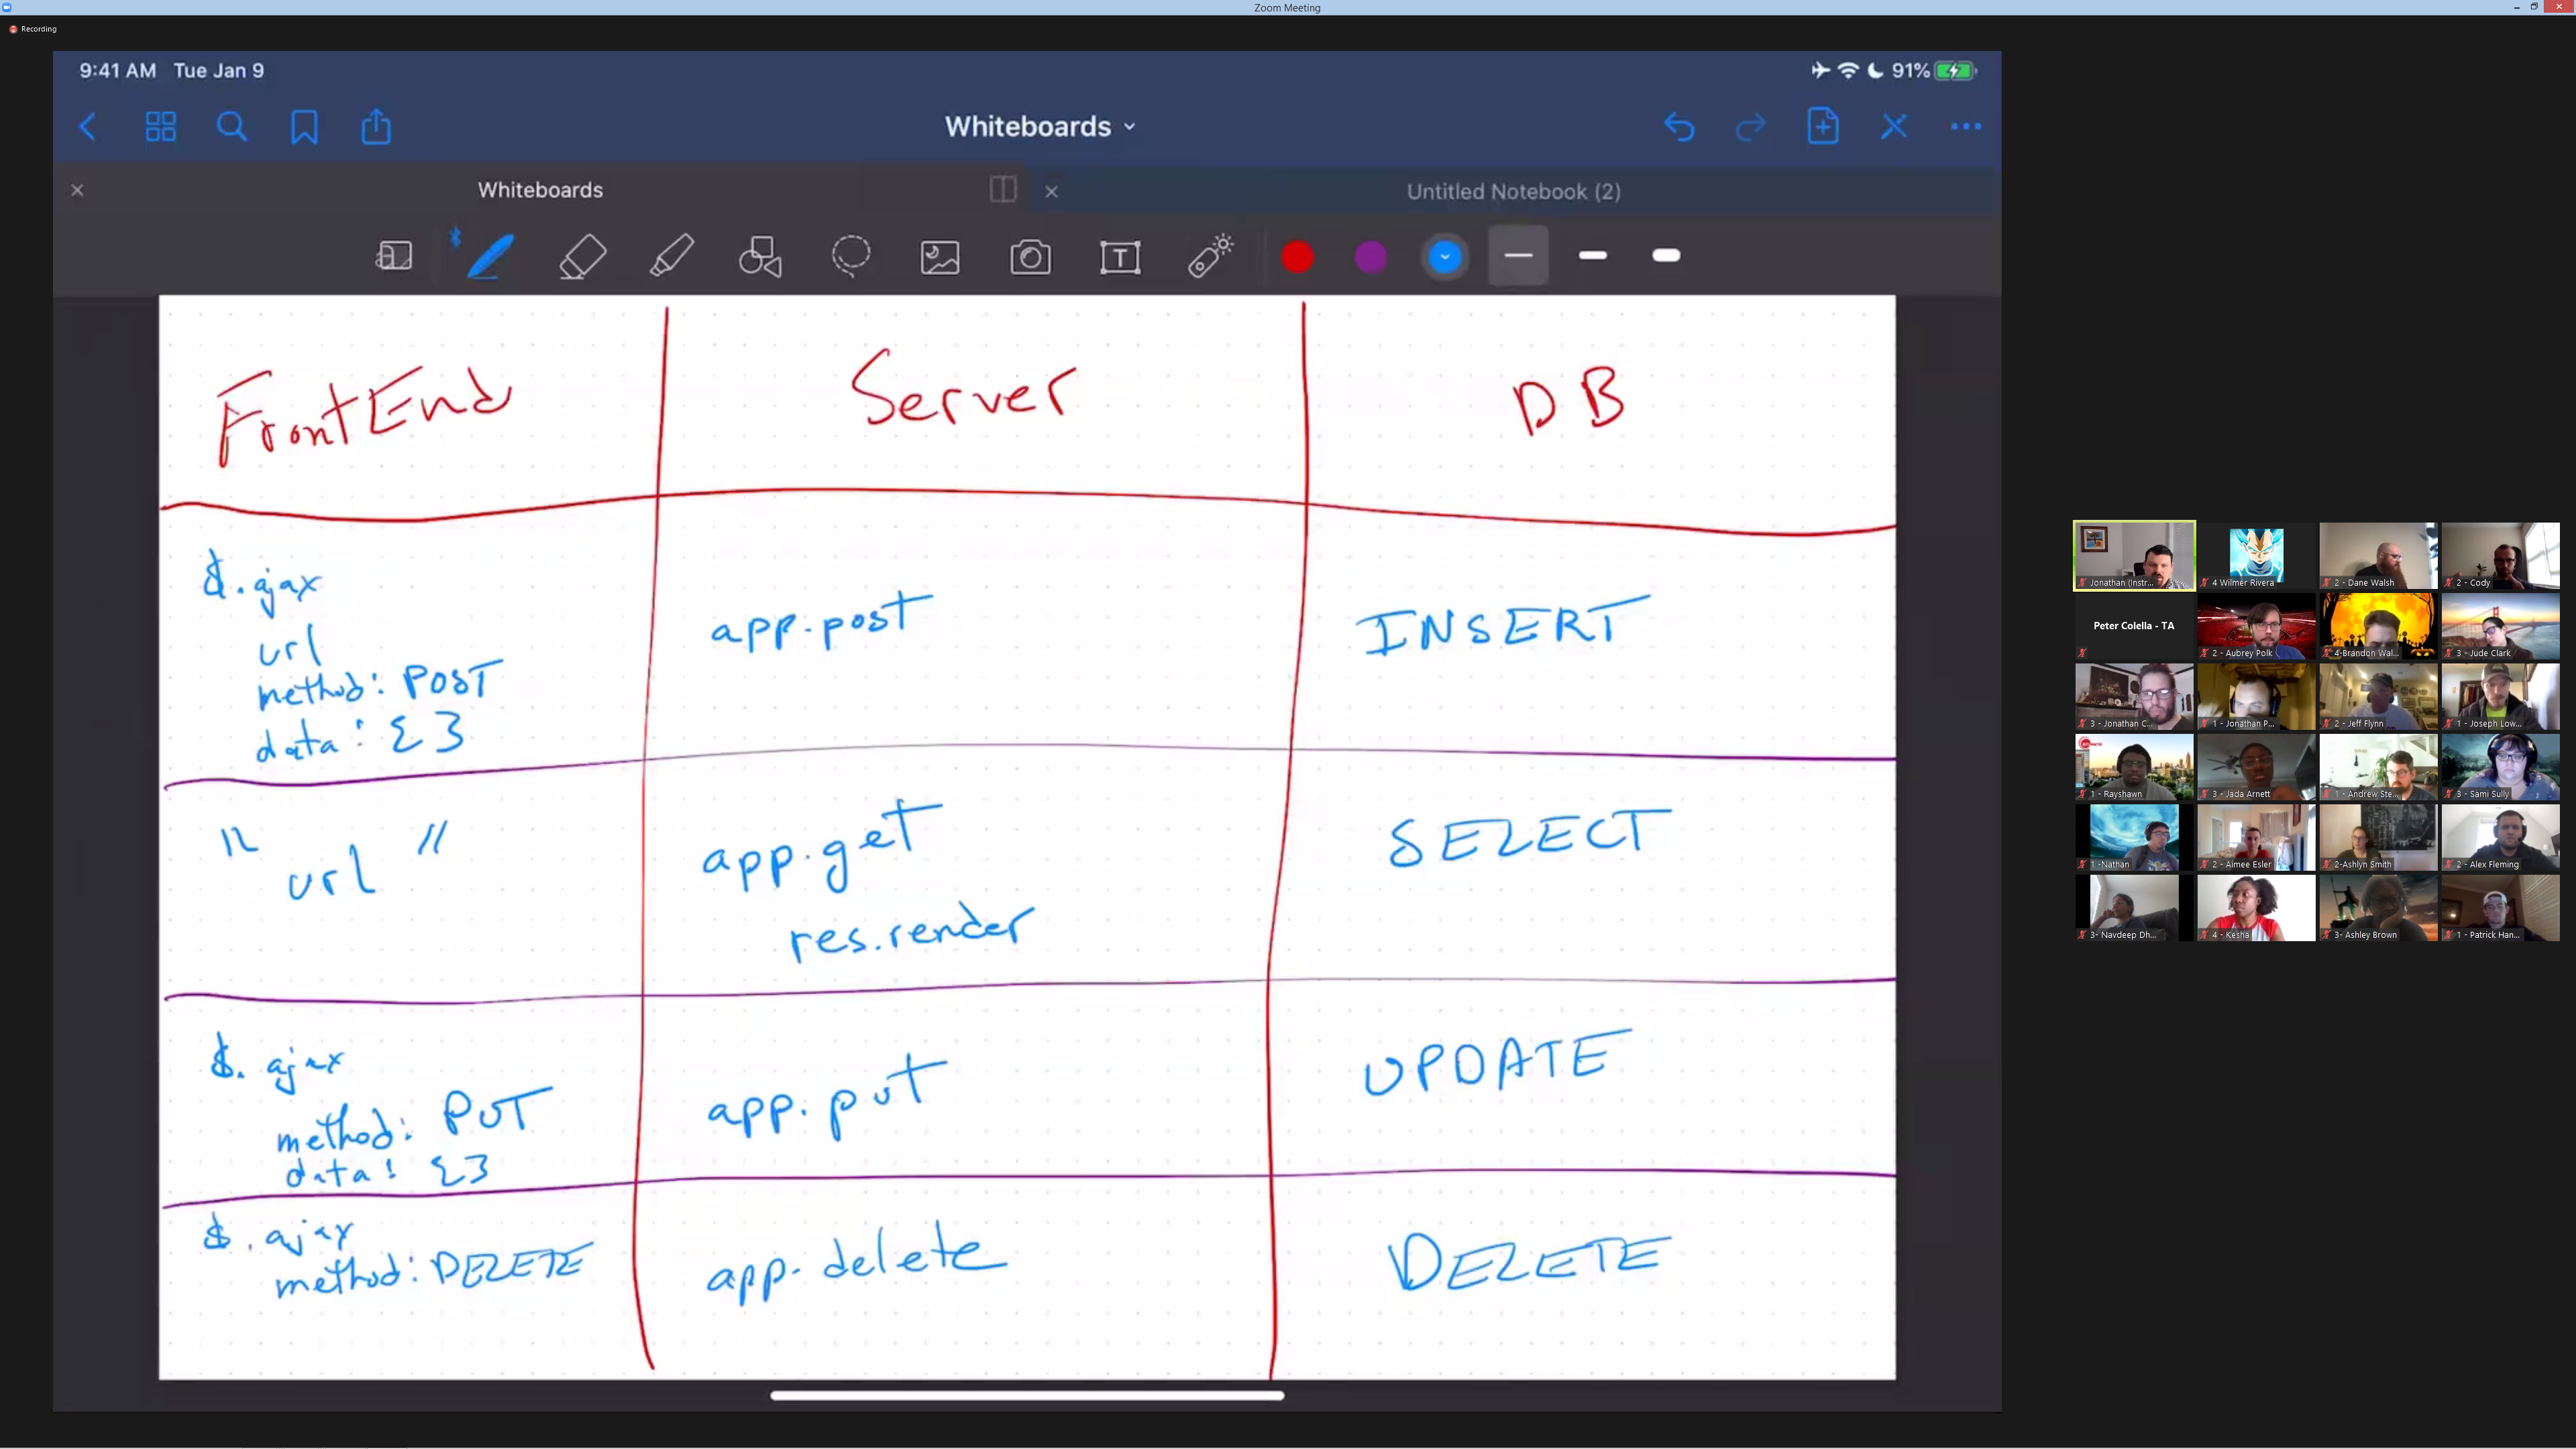 Zoom Meeting
Recording
9:41 AM Tue Jan 9
91%
Whiteboards
Whiteboards
Untitled Notebook (2)
T
FrontEnd
Server
DB
$.ajax
url
method: POST
data: {}
app.post
INSERT
" url "
app.get
res.render
SELECT
$.ajax
method: PUT
data: {}
app.put
UPDATE
$.ajax
method: DELETE
app.delete
DELETE
Jonathan (Instr...
4 Wilmer Rivera
2 - Dane Walsh
2 - Cody
Peter Colella - TA
2 - Aubrey Polk
4-Brandon Wal...
3 - Jude Clark
3 - Jonathan C...
1 - Jonathan P...
2 - Jeff Flynn
1 - Joseph Low...
1 - Rayshawn
3 - Jada Arnett
1 - Andrew Ste...
3 - Sami Sully
1 -Nathan
2 - Aimee Esler
2-Ashlyn Smith
2 - Alex Fleming
3- Navdeep Dh...
4 - Kesha
3- Ashley Brown
1 - Patrick Han...